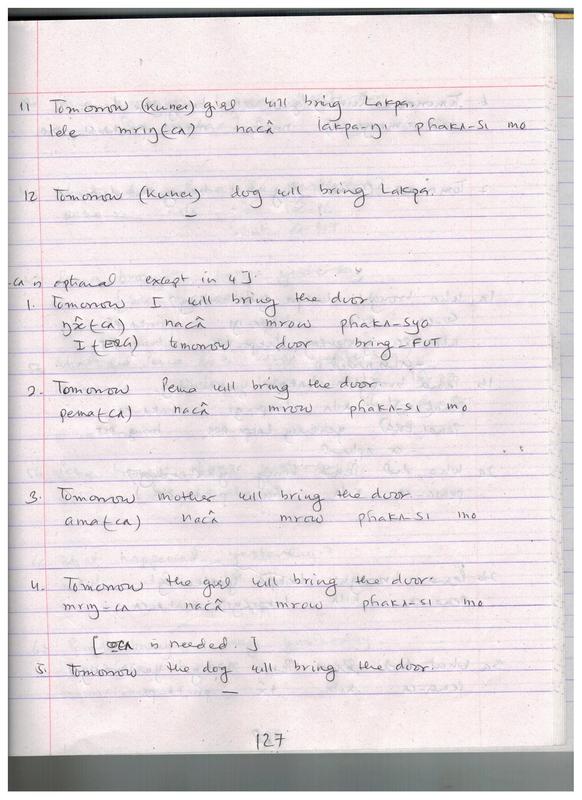 11 Tomorrow (Kunei) girl will bring Lakpa.
lele mriŋ(-cʌ) nacʌ̂ lakpa-ŋi phakʌ-si mo
12 Tomorrow (Kunei) dog will bring Lakpa.
—
-cʌ is optional except in 4].
1. Tomorrow I will bring the door.
(-cʌ) nacʌ̂ mrow phakʌ-syo
I (ERG) tomorrow door bring-FUT
2. Tomorrow Pema will bring the door.
pema(-cʌ) nacʌ̂ mrow phakʌ-si mo
3. Tomorrow mother will bring the door.
ama(-cʌ) nacʌ̂ mrow phakʌ-si mo
4. Tomorrow the girl will bring the door.
mriŋ-cʌ nacʌ̂ mrow phakʌ-si mo
[ cʌ is needed. ]
5. Tomorrow the dog will bring the door.
—
127